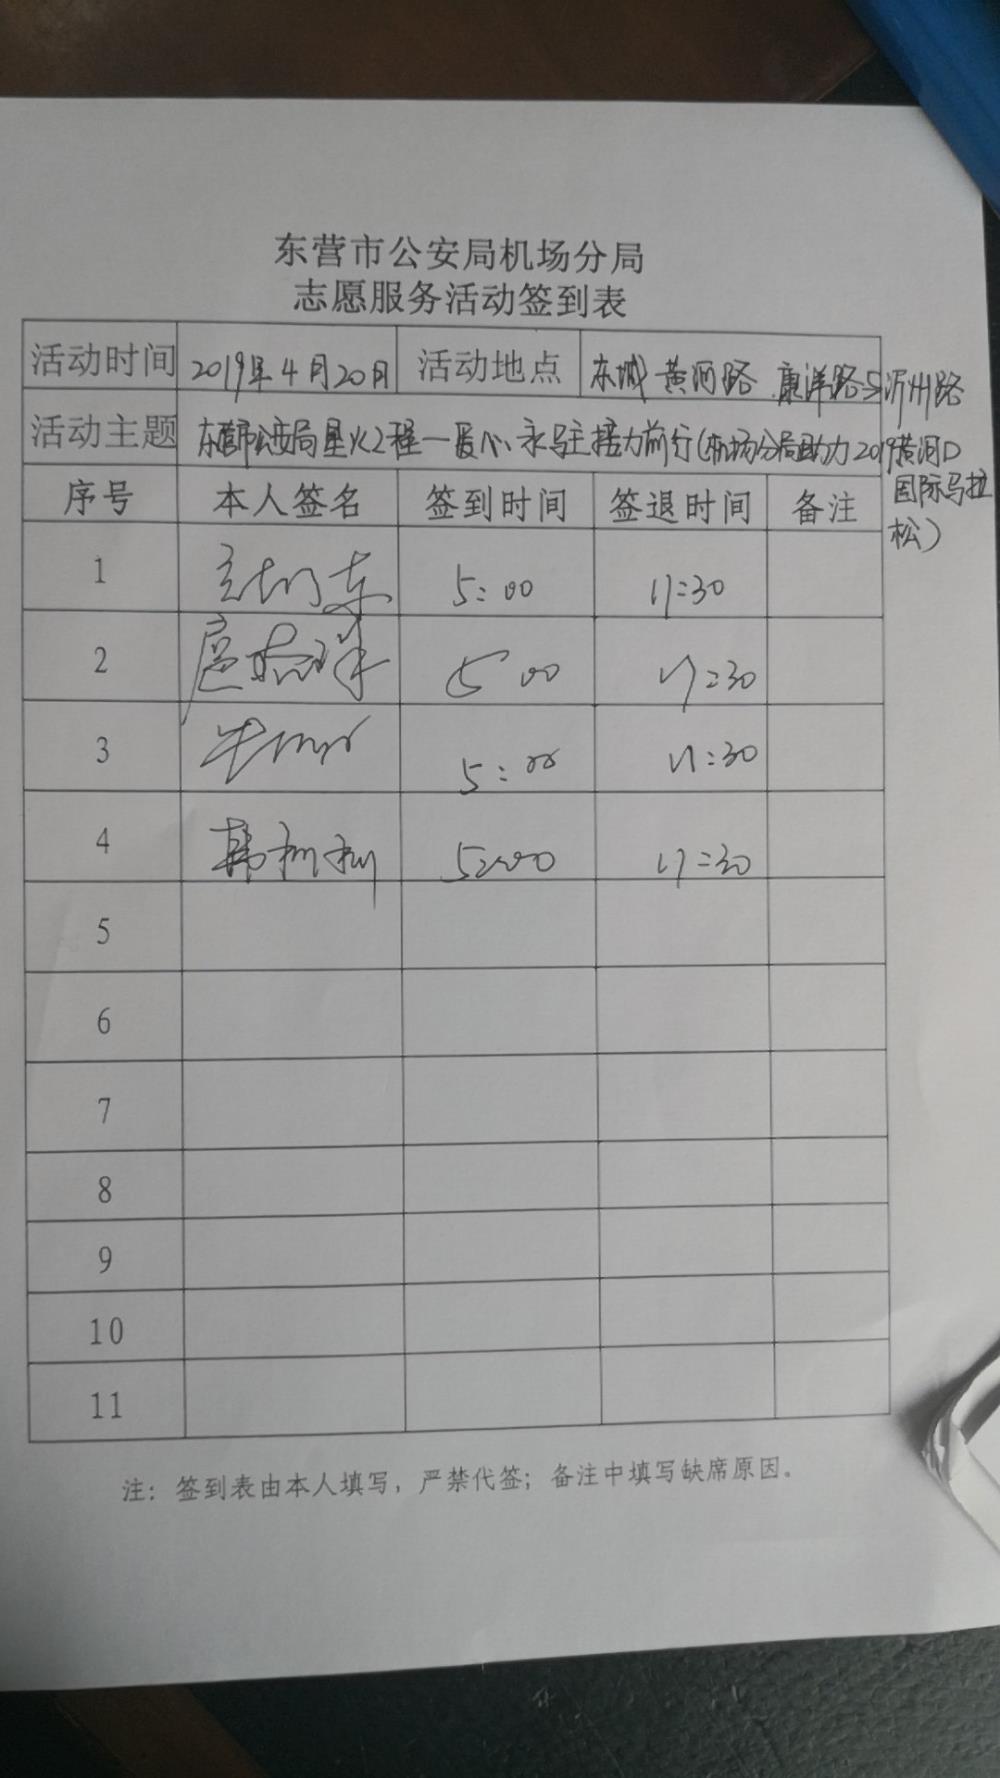 东营市公安局机场分局
志愿服务活动签到表
活动时间 2019年4月20日 活动地点 东城黄河路、康洋路与沂州路
活动主题 东营市公安局星火之程—爱心永驻接力前行(机场分局助力2019黄河口
国际马拉
松)
序号 本人签名 签到时间 签退时间 备注
1 5:00 11:30
2 5:00 11:30
3 5:00 11:30
4 韩 5:00 11:30
5
6
7
8
9
10
11
注：签到表由本人填写，严禁代签；备注中填写缺席原因。